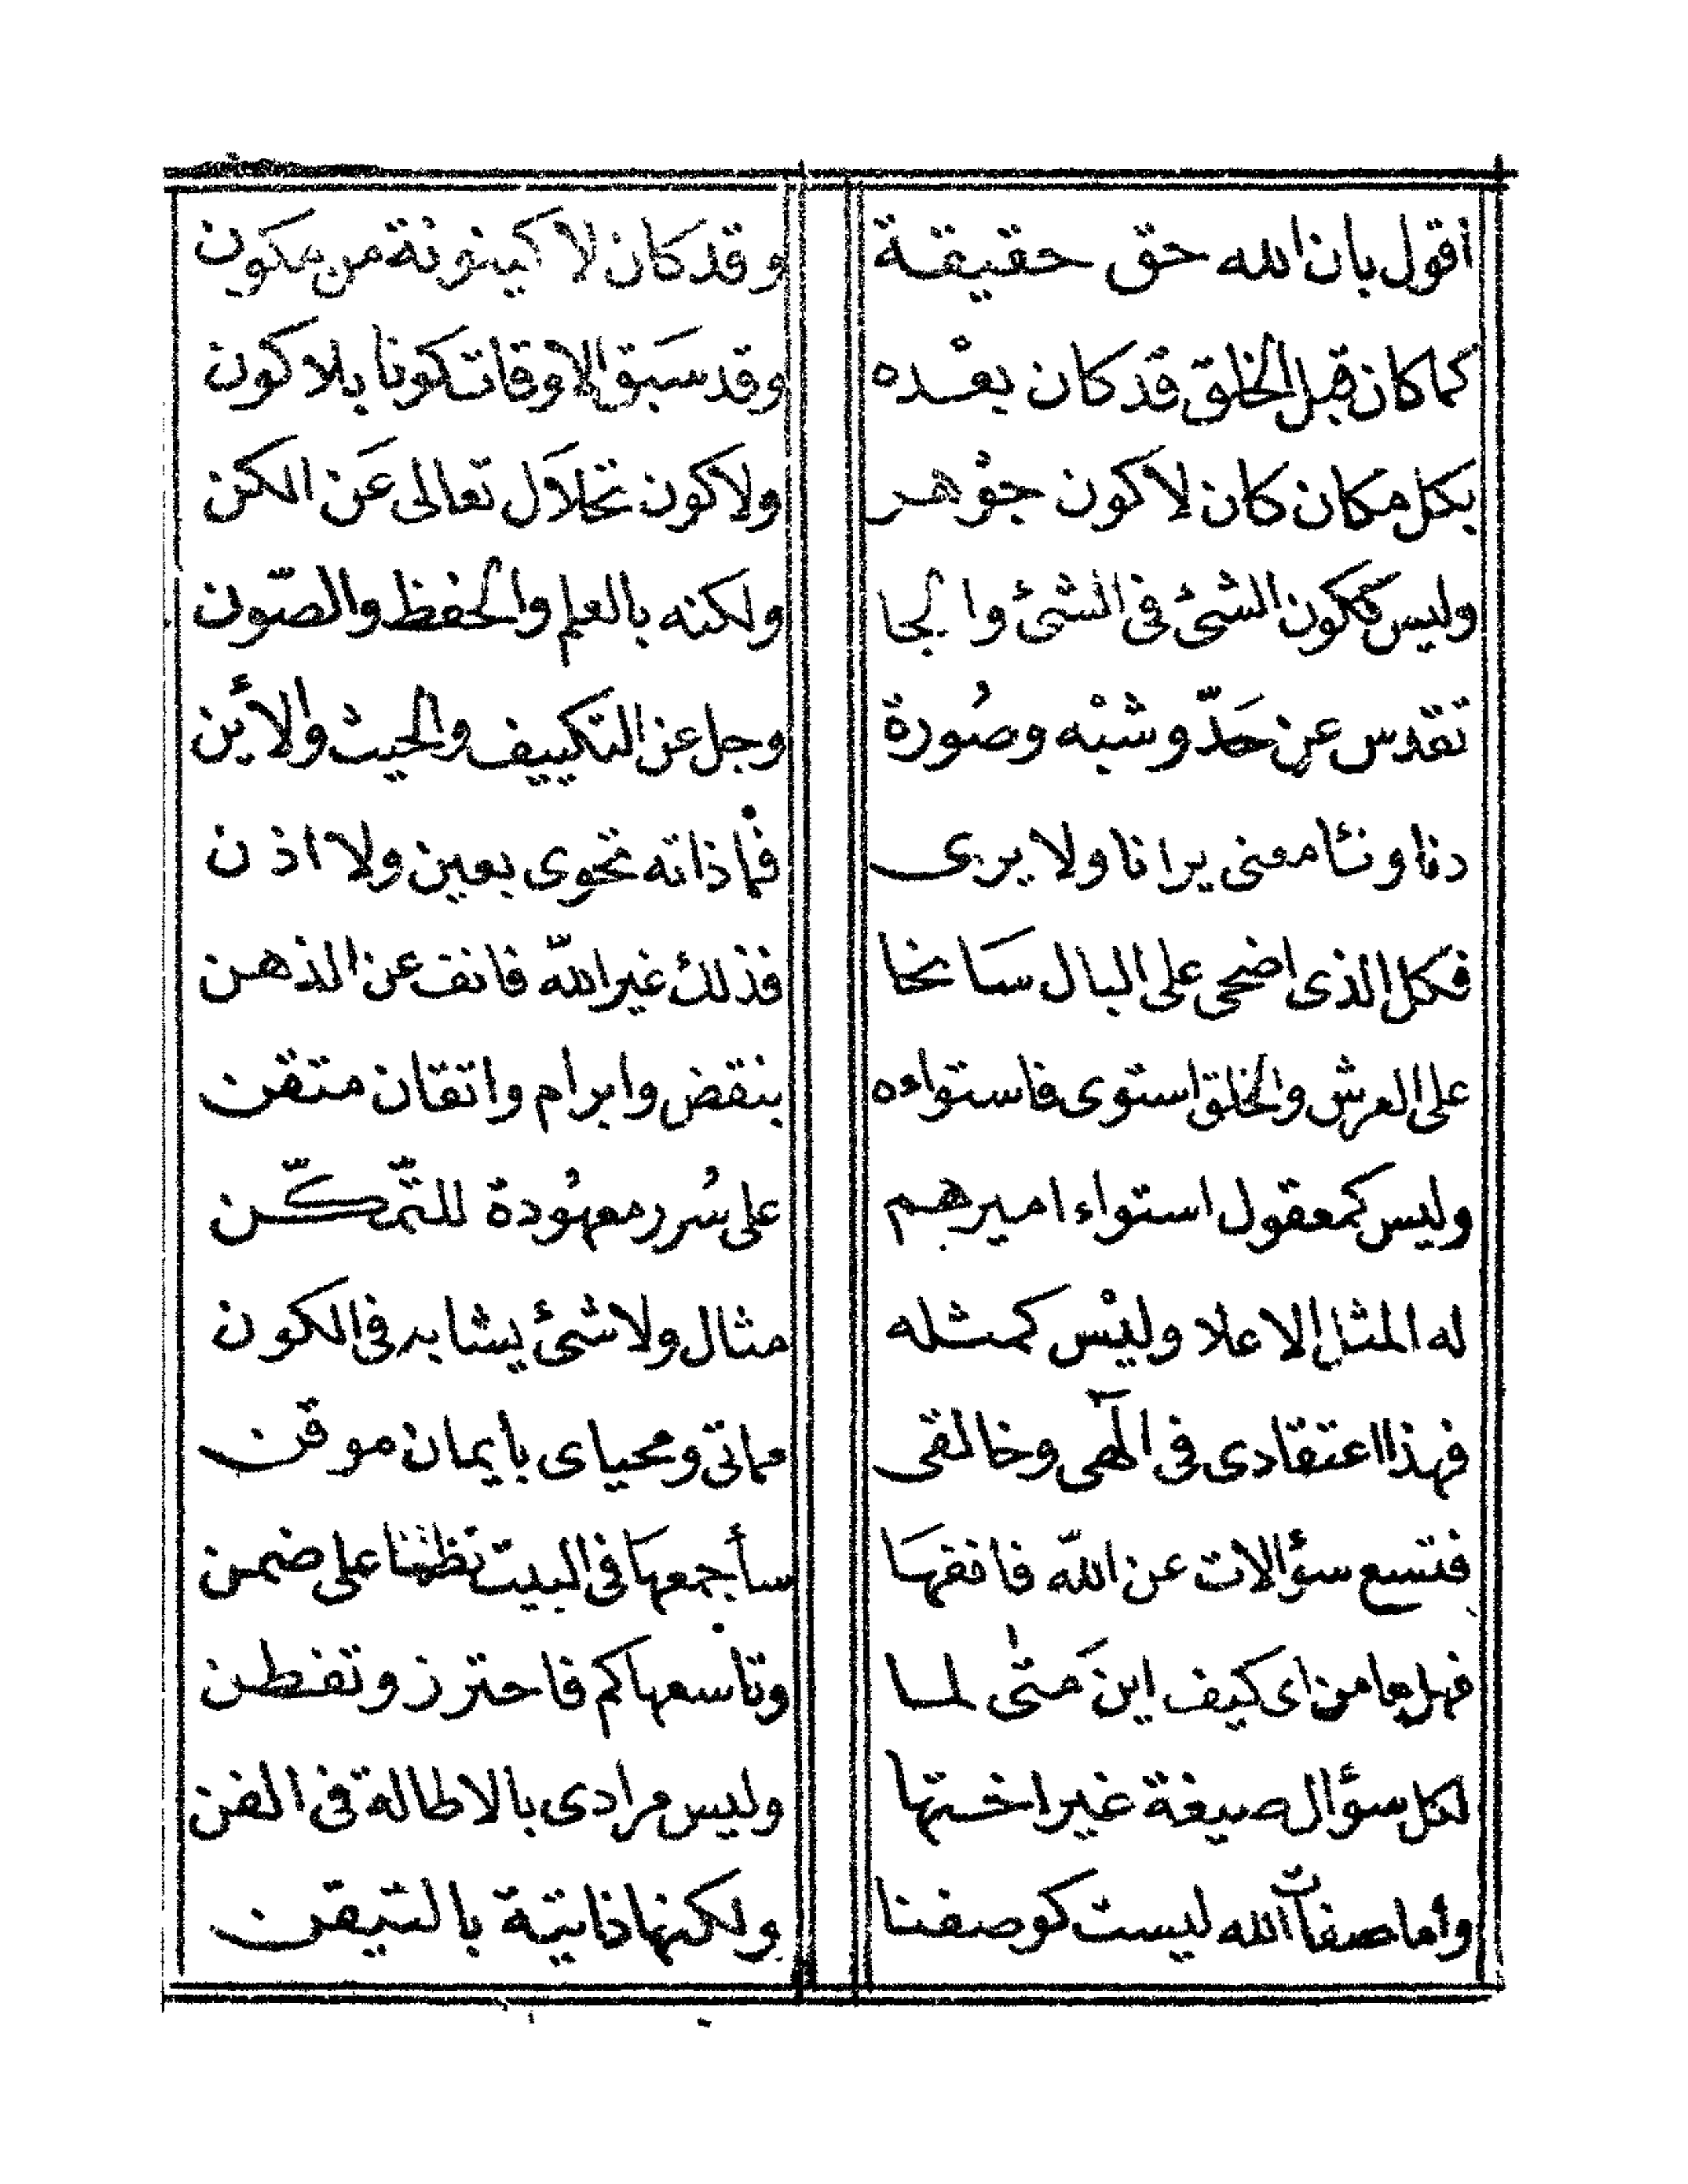 أقول بان الله حق حقيقة وقد كان لا كينونة من مكون
كما كان قبل الخلق قد كان بعْده وقد سبق الاوقات كونا بلا كون
بكل مكان كان لا كون جوْهر ولا كون تحلال تعالى عَن الكن
وليس ككون الشئ في الشئ والجا ولكنه بالعلم والحفظ والصّون
تقدس عن حَدّ وشبْه وصُورة وجل عن التكييف والحيث والأين
دنا ونئا معنى يرانا ولا يرى فما ذاته تحوى بعين ولا اذن
فكل الذى اضحى على البال سَانحا فذلك غير اللّه فانف عن الذهن
على العرش والخلق استوى فاستواءه بنقض وابرام واتقان متقن
وليس كمعقول استواء اميرهم على سُرر معهُودة للتّمكّن
له المثل الاعلا وليْس كمثله مثال ولا شئ يشابه في الكون
فهذا اعتقادى فى الٓهى وخالقى مماتى ومحياى بايمان موقن
فتسع سؤالات عن اللّه فانفهَا سأجمعهَا فى البيت نظمًا على ضمن
فهل ما من اى كيف اينَ مَتىٰ لما وتاسعها كم فاحترز وتفطن
لكل سؤال صيغة غير اختها وليس مرادى بالاطالة فى الفن
وأما صفات الله ليست كوصفنا ولكنها ذاتية بالتيقن